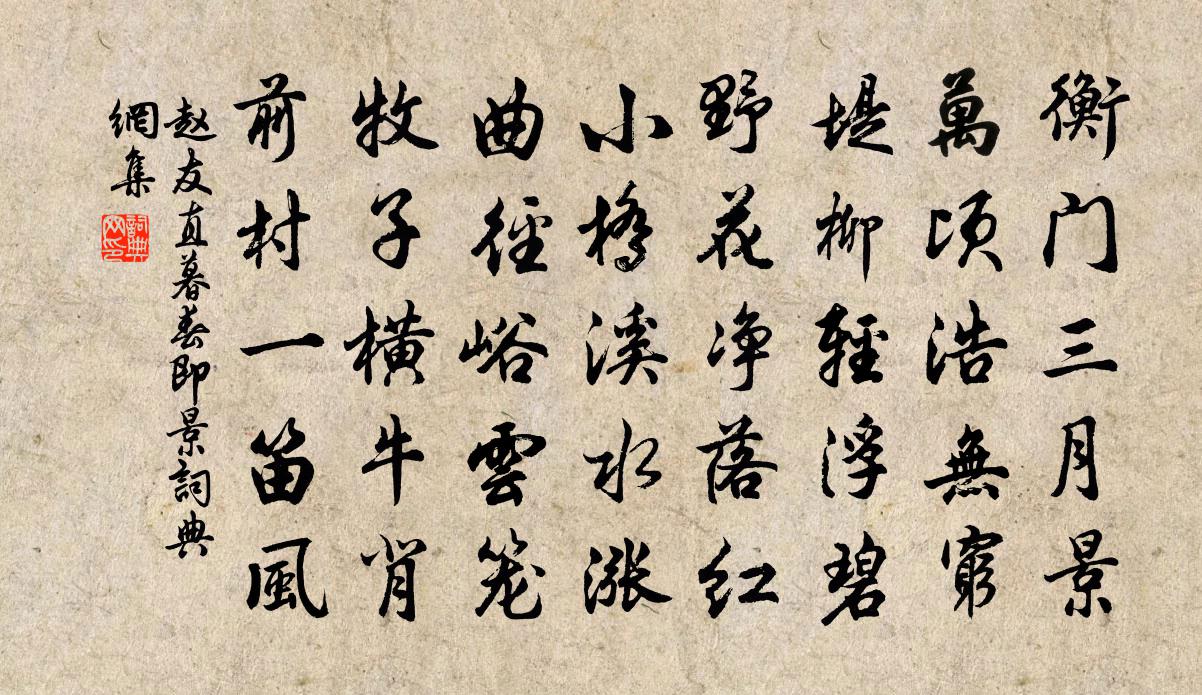 衡门三月景
萬顷浩無窮
堤柳輕浮碧
野花净落红
小橋溪水漲
曲徑峪雲笼
牧子横牛背
前村一笛風
赵友直暮春即景詞典
網集
詞典
网印